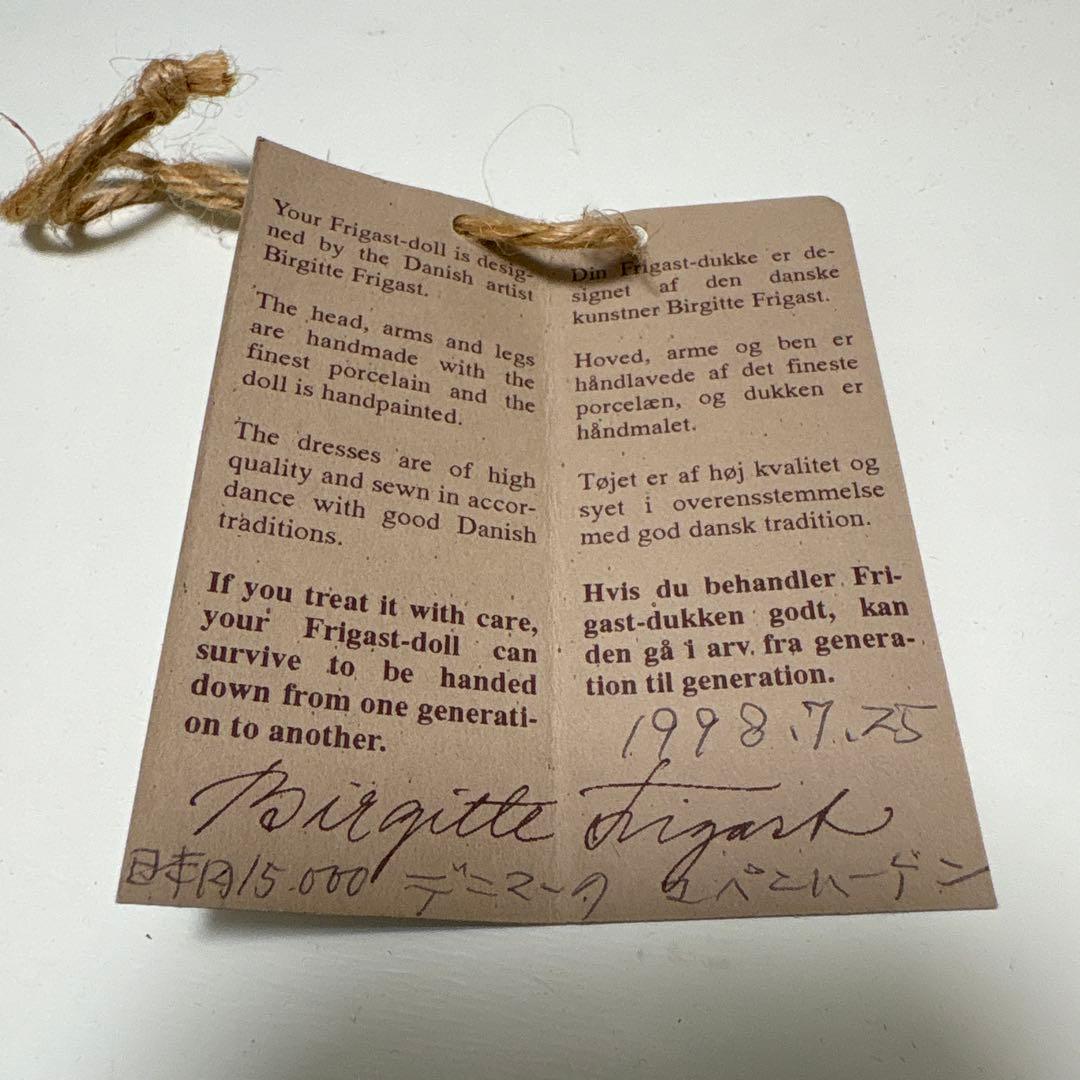 Your Frigast-doll is desig-
ned by the Danish artist
Birgitte Frigast.
The head, arms and legs
are handmade with the
finest porcelain and the
doll is handpainted.
The dresses are of high
quality and sewn in accor-
dance with good Danish
traditions.
If you treat it with care,
your Frigast-doll can
survive to be handed
down from one generati-
on to another.
Din Frigast-dukke er de-
signet af den danske
kunstner Birgitte Frigast.
Hoved, arme og ben er
håndlavede af det fineste
porcelæn, og dukken er
håndmalet.
Tøjet er af høj kvalitet og
syet i overensstemmelse
med god dansk tradition.
Hvis du behandler Fri-
gast-dukken godt, kan
den gå i arv fra genera-
tion til generation.
1998.7.25
Birgitte Frigast
日本円15.000 デニマーク コペンハーゲン